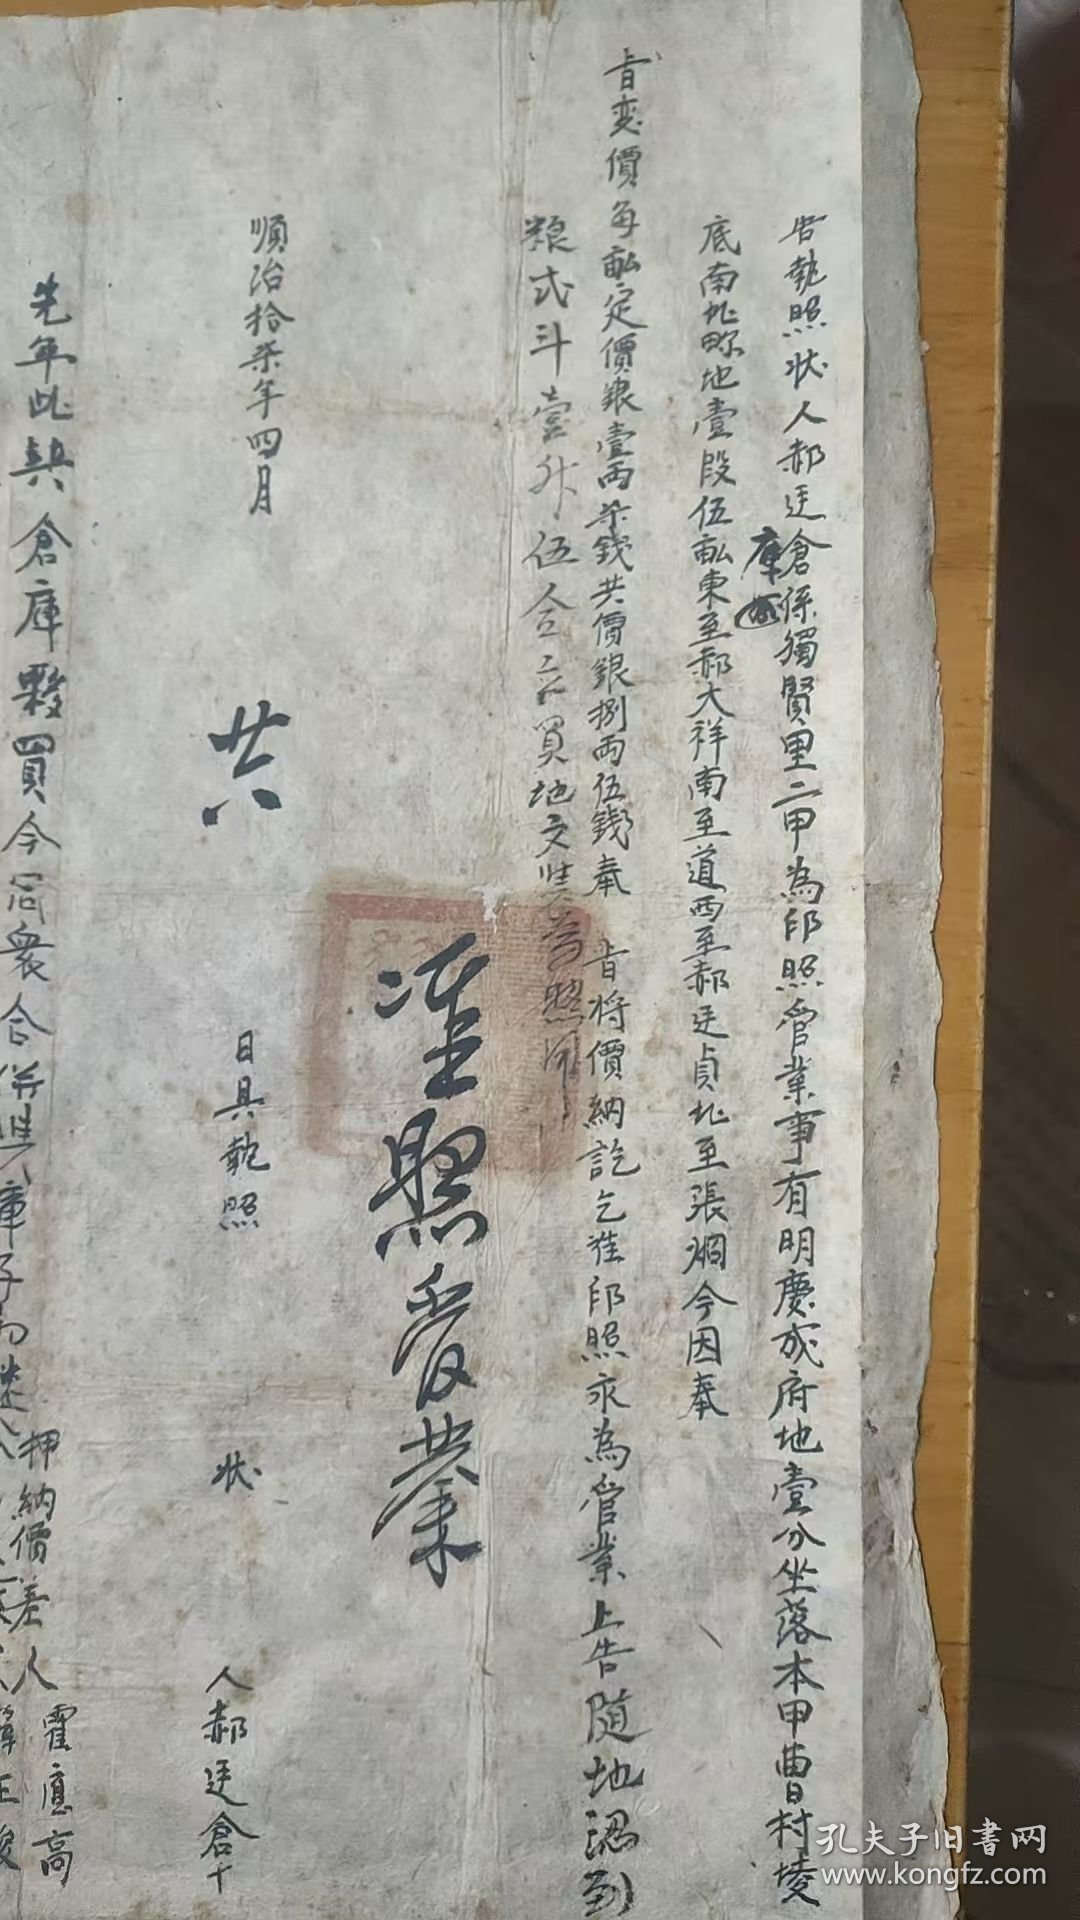 告執照狀人郝廷倉係獨賢里二甲為印照管業事有明慶成府地壹分坐落本甲曹村堎
庫
底南北畛地壹段伍畝東至郝大祥南至道西至郝廷貞北至張烱今因奉
旨变價每畝定價銀壹両柒錢共價銀捌両伍錢奉 旨将價納訖乞准印照永為管業上告随地認到
粮弍斗壹升伍合 買地文 照
准照
共
順治拾柒年四月 日具執照 狀 人郝廷倉十
先年此契倉庫夥買今同衆合併
押納價差人霍應高
孔夫子旧书网
www.kongfz.com